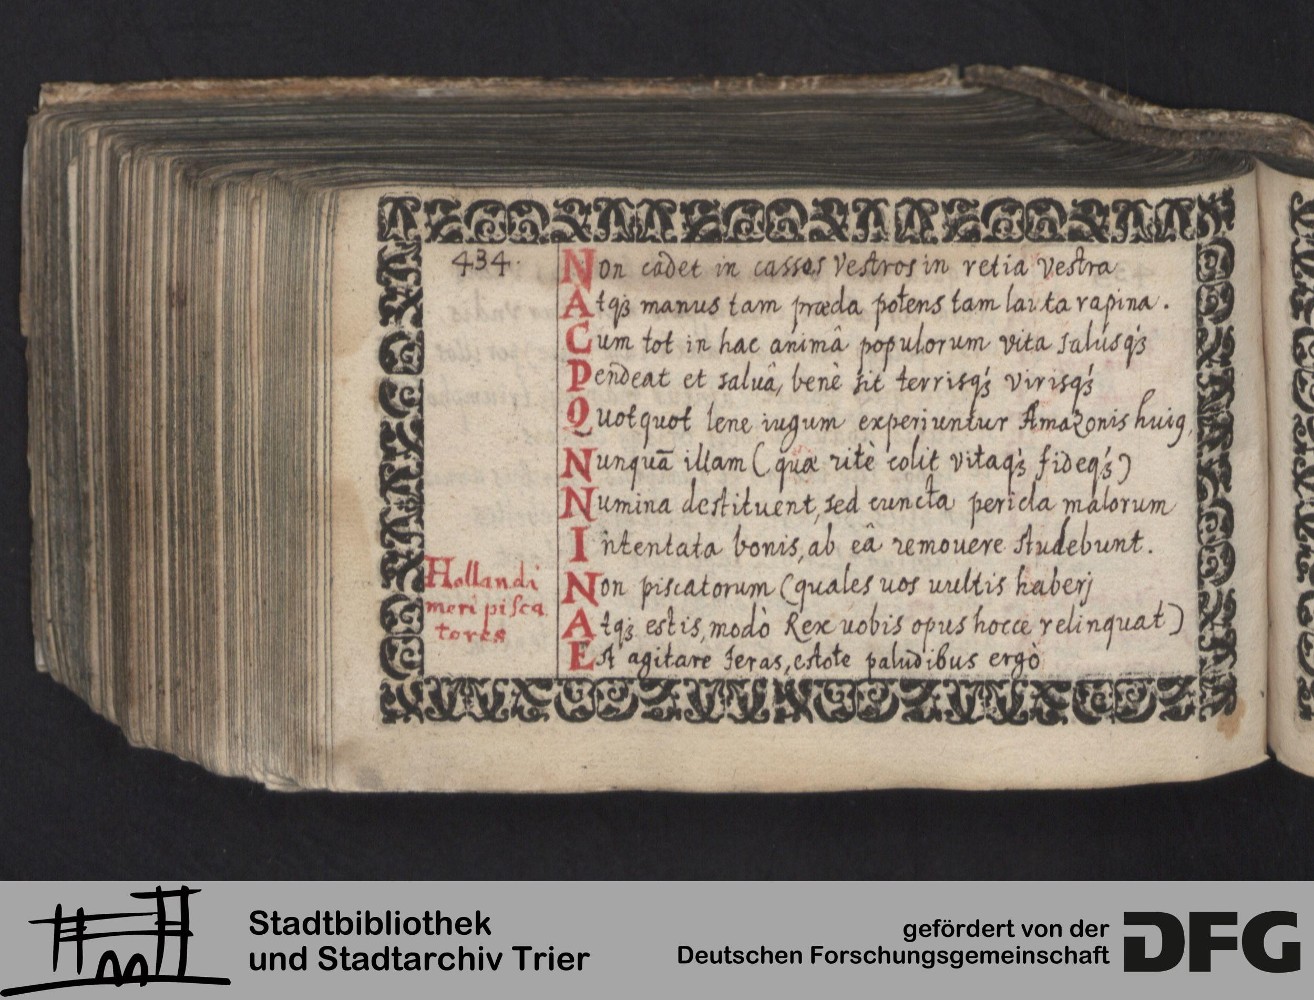 434.
Non cadet in casses vestros in retia vestra
Atqꝫ manus tam præda potens tam lauta rapina.
Cum tot in hac animâ populorum vita salúsqꝫ
Pendeat et saluâ, benè sit terrisqꝫ virisqꝫ
Quotquot lene iugum experiuntur Amazonis huiꝰ,
Nunquā illam (quæ ritè colit vitaqꝫ fideqꝫ)
Numina destituent, sed cuncta pericla malorum
Intentata bonis, ab eâ remouere studebunt.
Hollandi
meri pisca
tores
Non piscatorum (quales uos uultis haberj
Atqꝫ estis, modò Rex uobis opus hocce relinquat)
Est agitare feras, estote paludibus ergò
Stadtbibliothek
und Stadtarchiv Trier
gefördert von der
Deutschen Forschungsgemeinschaft
DFG